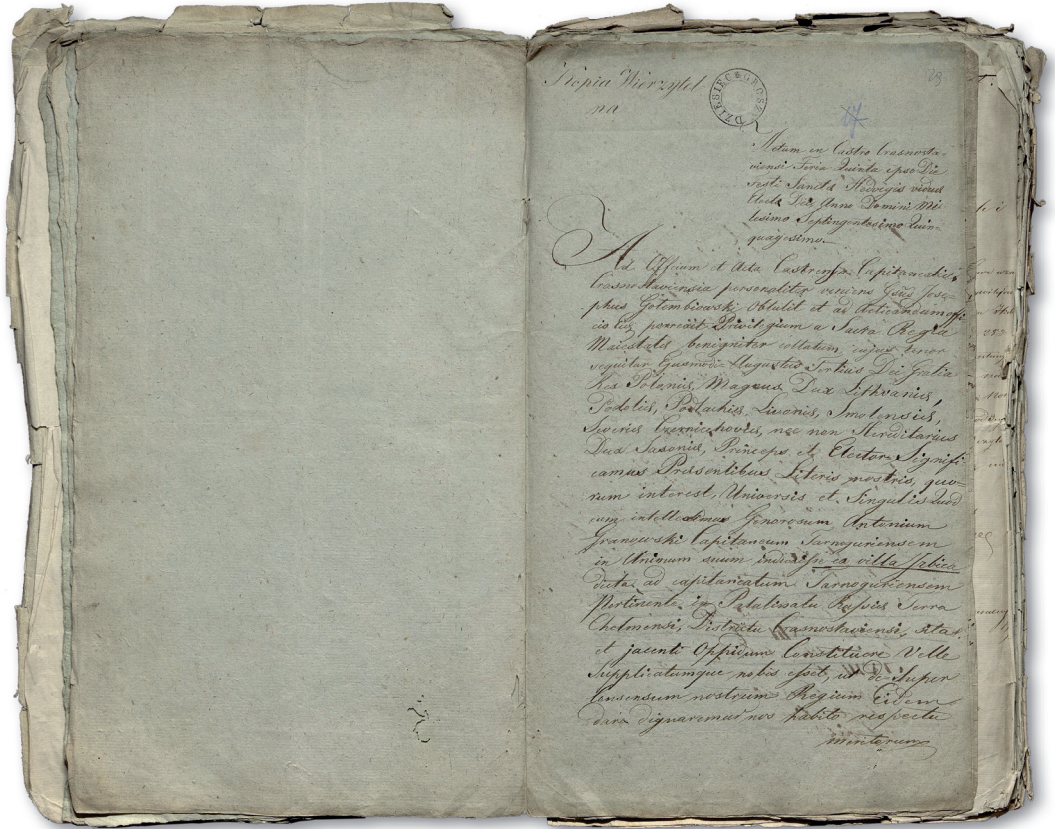 Kopia Wierzytel
na
DZIESIĘC GROSZ
29
17
Actum in Castro Crasnosta-
viensi Feria Quinta ipso Die
Festi Sanctæ Hedvigis viduæ
Electæ Die Anno Domini Mil
lesimo Septingentesimo Quin-
quagesimo.
Ad Officium et Acta Castrensia Capitanealia
Crasnostaviensia personaliter veniens Gsus Jose-
phus Gołembiowski Obtulit et ad Acticandum offi
cio huic porrexit Privilegium a Sacra Regia
Maiestate benigniter collatum, cujus tenor
sequitur Ejusmodi Augustus Tertius Dei Gratia
Rex Poloniæ, Magnus Dux Lithvaniæ,
Podoliæ, Podlachiæ, Livoniæ, Smolensiæ,
Severiæ Czerniechoviæ, nec non Hæreditarius
Dux Saxoniæ, Princeps et Elector. Signifi
camus Præsentibus Literis nostris, quo-
rum interest, Universis et Singulis Quod
cum intelleximus Generosum Antonium
Granowski Capitaneum Tarnoguriensem
in Animum suum induxisse ex villa Izbica
dicta ad capitaneatum Tarnoguriensem
Pertinente in Palatinatu Russiæ Terra
Chelmensi, Districtu Crasnostaviensi, sita
et jacenti Oppidum Constituere Velle
Supplicatumque nobis esset, ut de Super
Consensum nostrum Regium Eidem
dare dignaremur nos habito respectu
meritorum